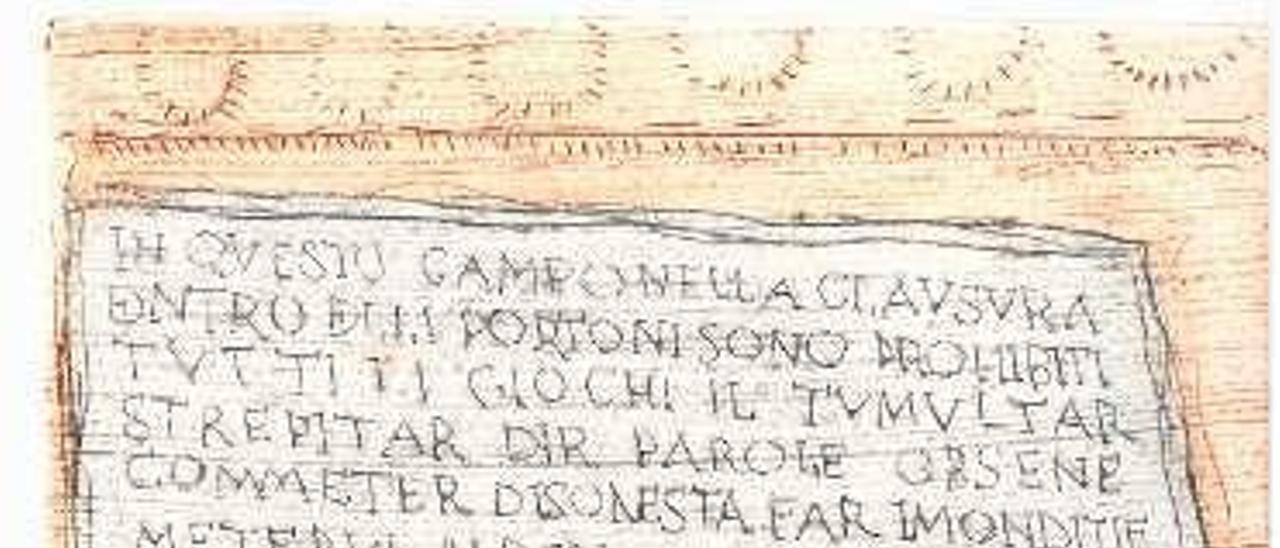 IN QVESTO CAMPO NELLA CLAVSVRA
ENTRO DELLI PORTONI SONO PROHIBITI
TVTTI LI GIOCHI IL TVMVLTAR
STREPITAR DIR PAROLE OBSENE
COMMETER DISONESTA FAR IMONDITIE
METERVI